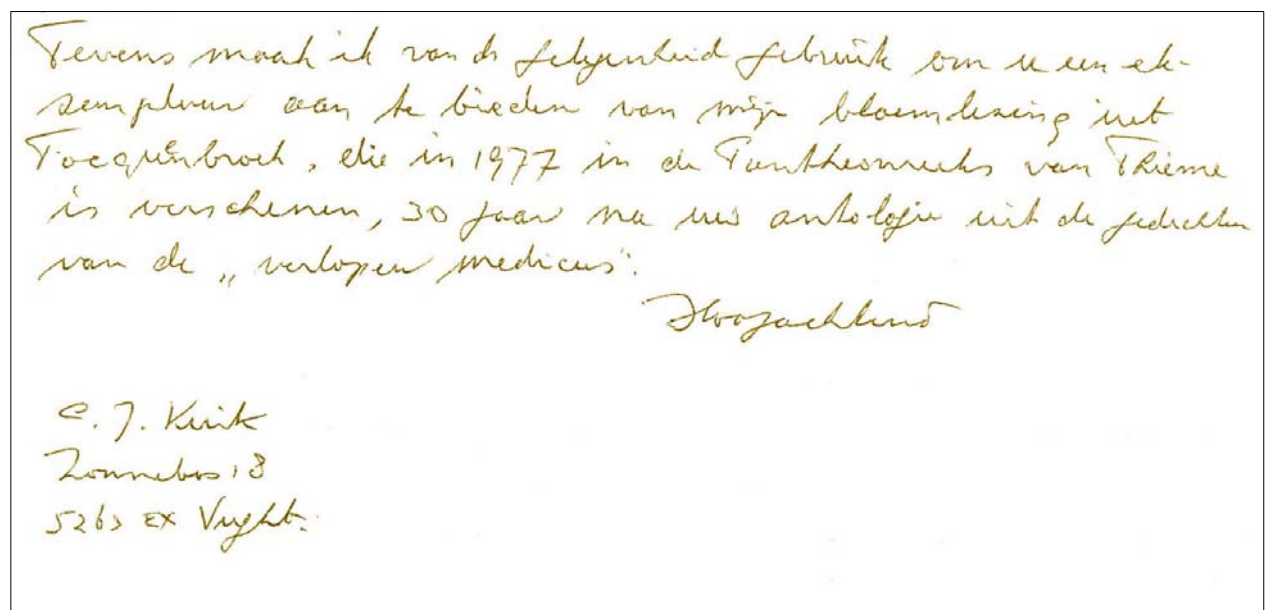 Tevens maak ik van de gelegenheid gebruik om u een ek-
semplaar aan te bieden van mijn bloemlezing uit
Focquenbroch, die in 1977 in de Pantheonreeks van Thieme
is verschenen, 30 jaar na uw antologie uit de gedichten
van de „verlopen medicus”.
Hoogachtend
C. J. Kuik
Zonnebos 18
5263 EX Vught.